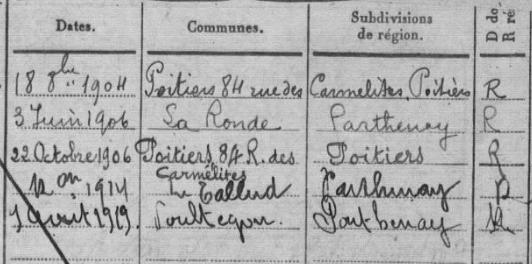 Dates. Communes. Subdivisions de région. D do R ré
18 8bre 1904 Poitiers 84 rue des Carmelites Poitiers R
3 Juin 1906 La Ronde Parthenay R
22 Octobre 1906 Poitiers 84 R. des Carmélites Poitiers R
1914 Tallud Parthenay R
1 Août 1919 Parthenay R